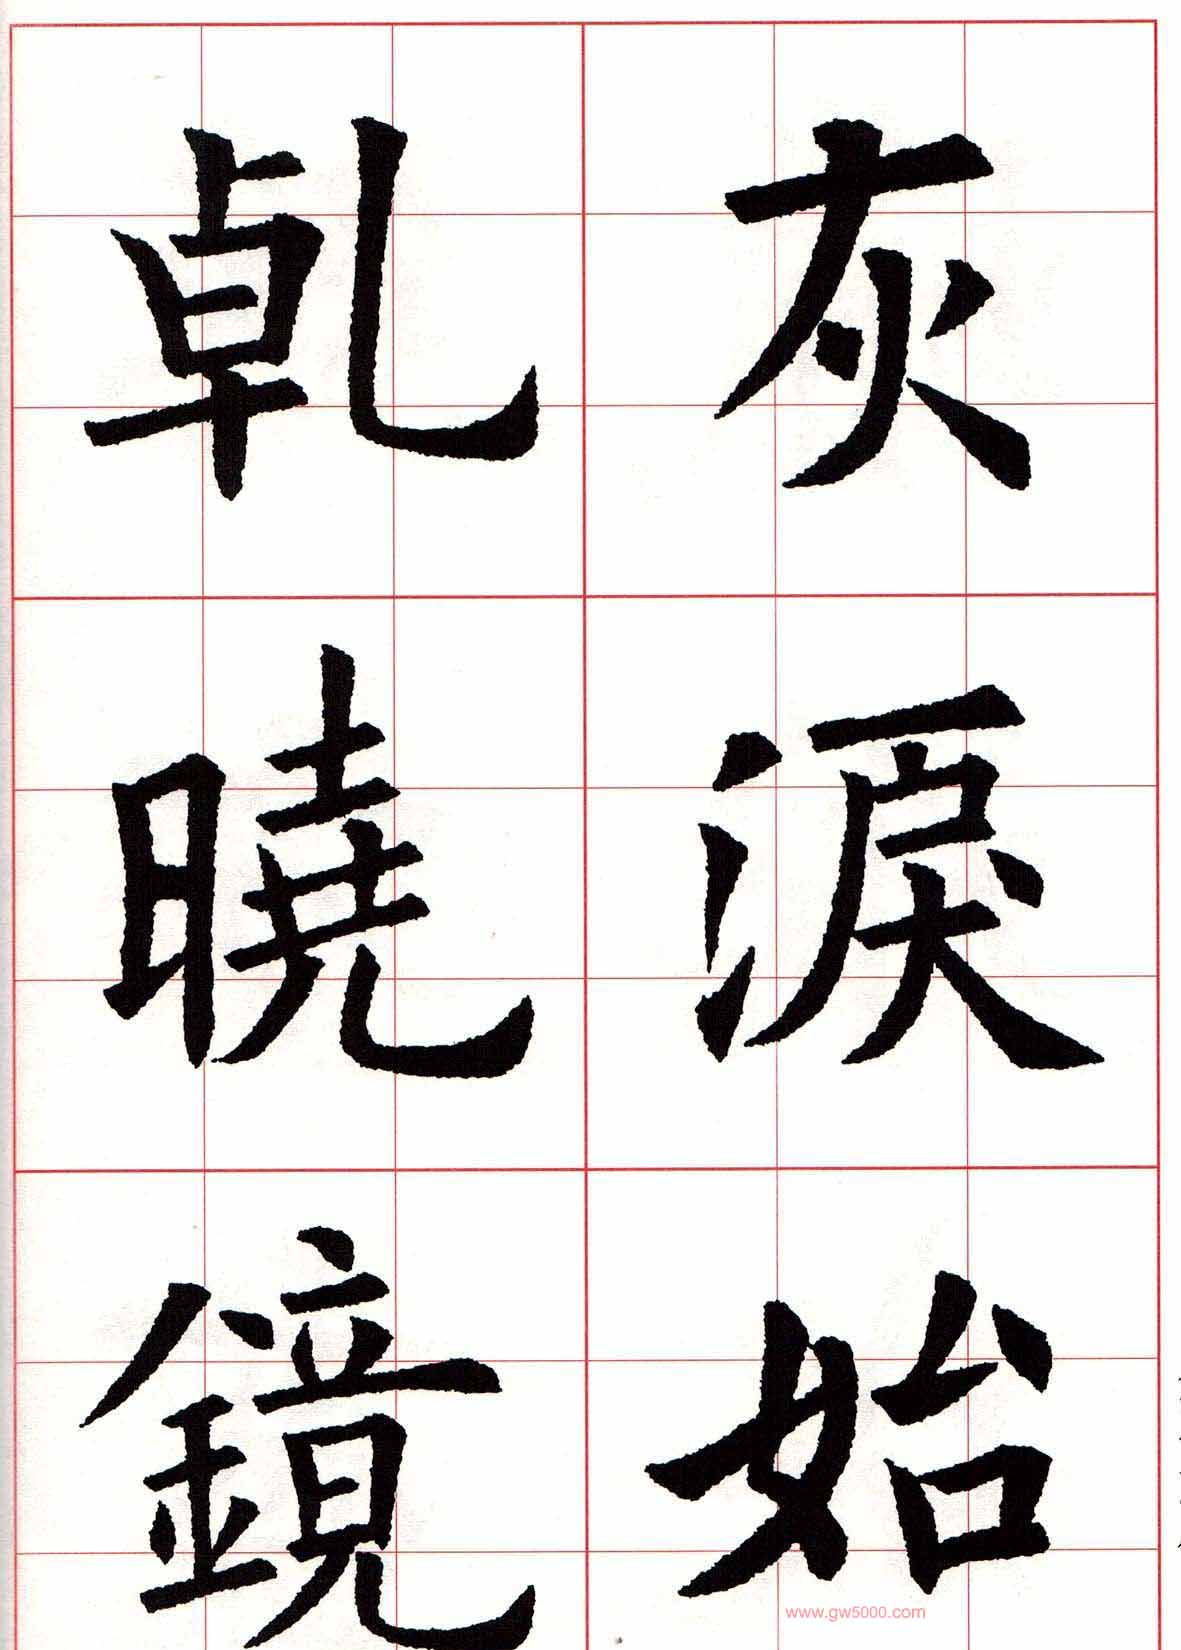 灰淚始
乹曉鏡
www.gw5000.com